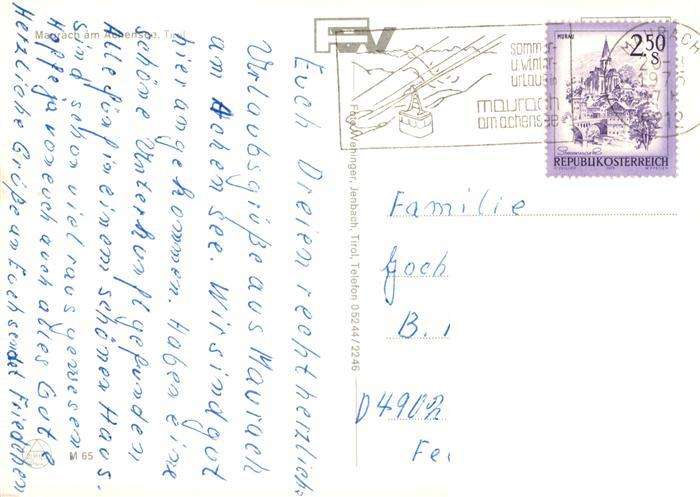 Maurach am Achensee, Tirol
Euch Dreien recht herzlich
Urlaubsgrüße aus Maurach
am Achensee. Wir sind gut
hier angekommen. Haben eine
schöne Unterkunft gefunden
Alle fünf in einem schönen Haus.
Sind schon viel raus gewesen
Hoffe ja von euch auch alles Gute
Herzliche Grüße an Euch sendet Friedchen
M 65
Foto Wehinger, Jenbach, Tirol, Telefon 05244/2246
sommer
u. winter
urlaub
maurach
am achensee
MURAU
2.50
S
REPUBLIK ÖSTERREICH
6212
Familie
Joch
B.
D 490